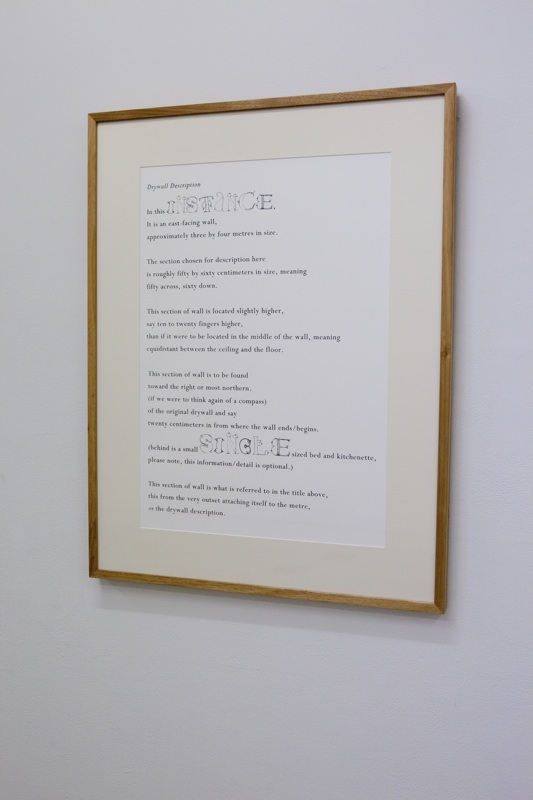 Drywall Description
In this INSTANCE.
It is an east-facing wall,
approximately three by four metres in size.
The section chosen for description here
is roughly fifty by sixty centimeters in size, meaning
fifty across, sixty down.
This section of wall is located slightly higher,
say ten to twenty fingers higher,
than if it were to be located in the middle of the wall, meaning
equidistant between the ceiling and the floor.
This section of wall is to be found
toward the right or most northern.
(if we were to think again of a compass)
of the original drywall and say
twenty centimeters in from where the wall ends/begins.
(behind is a small SINGLE sized bed and kitchenette,
please note, this information/detail is optional.)
This section of wall is what is referred to in the title above,
this from the very outset attaching itself to the metre,
as the drywall description.